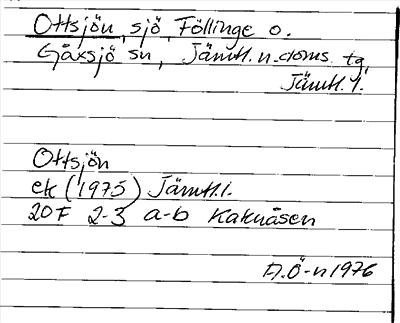 Ottsjön, sjö, Föllinge o.
Gåxsjö sn, Jämtl. n. doms. tg,
Jämtl. l.
Ottsjön
ek (1975) Jämtl. l.
20F 2-3 a-b Kaknäsen
A.Ö-n 1976